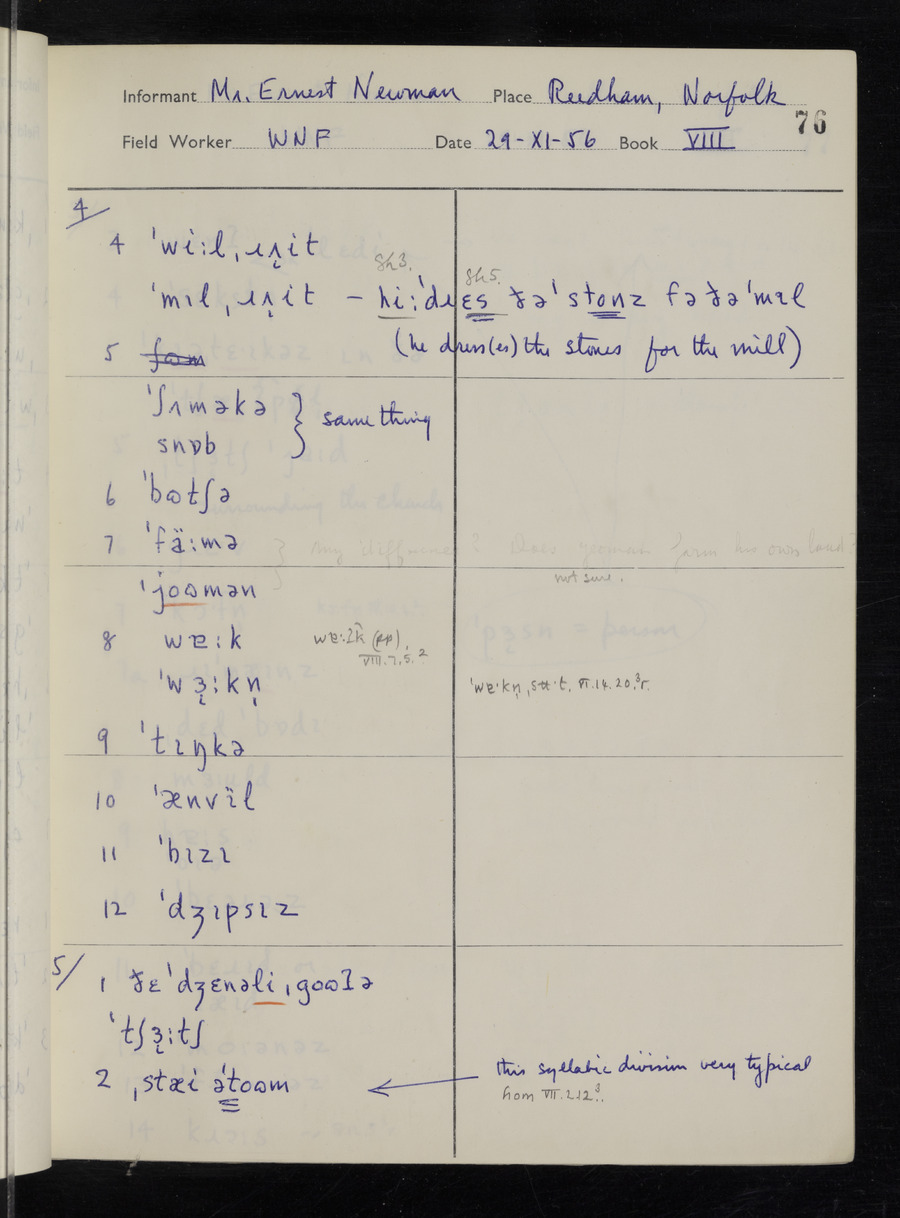 Informant Mr. Ernest Newman Place Reedham, Norfolk
76
Field Worker WNF Date 29-XI-56 Book VIII
4/
4 ˈwi:l,ɪʌ̨it
gh3. gh5.
ˈmɪl,ɪʌ̨it – hi:ˈdɪɛs ðəˈstonz fəðəˈmɪl
(he dress(es) the stones for the mill)
5
ˈʃʌməkə } same thing
snɒb
6 ˈbɷtʃə
7 ˈfä:mə
ˈjoɷmən
not sure.
8 wɐ:k wɐ:ʔk (pp), VIII.7.5.2
ˈwɜ̨:kn̩ ˈwɐ·kn̩, VI.14.20.
9 ˈtɪŋkə
10 ˈænvïl
11 ˈbɪzɪ
12 ˈdʒɪpsɪz
5/ 1 ðɛˈdʒɛnəli,goɷʔə
ˈtʃɜ̨:tʃ
2 ,stæi əˈtoɷm this syllabic division very typical
from VII.2.12